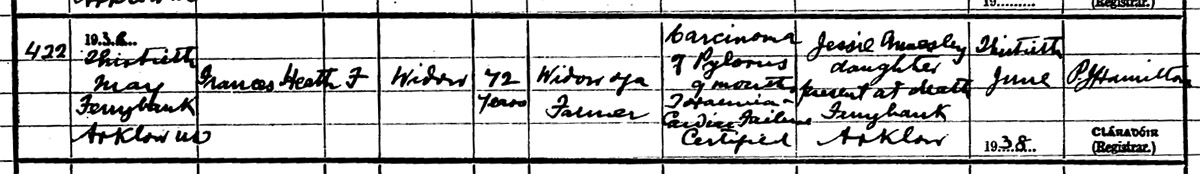 Arklow UD
19
(Registrar.)
422
1938
Thirtieth
May
Ferrybank
Arklow UD
Frances Heath
F
Widow
72
Years
Widow of a
Farmer
Carcinoma
of Pylorus
9 months
Toxaemia -
Cardiac Failure
Certified
Jessie Annesley
daughter
present at death
Ferrybank
Arklow
Thirtieth
June
1938
P J Hamilton
CLÁRADÓIR
(Registrar.)